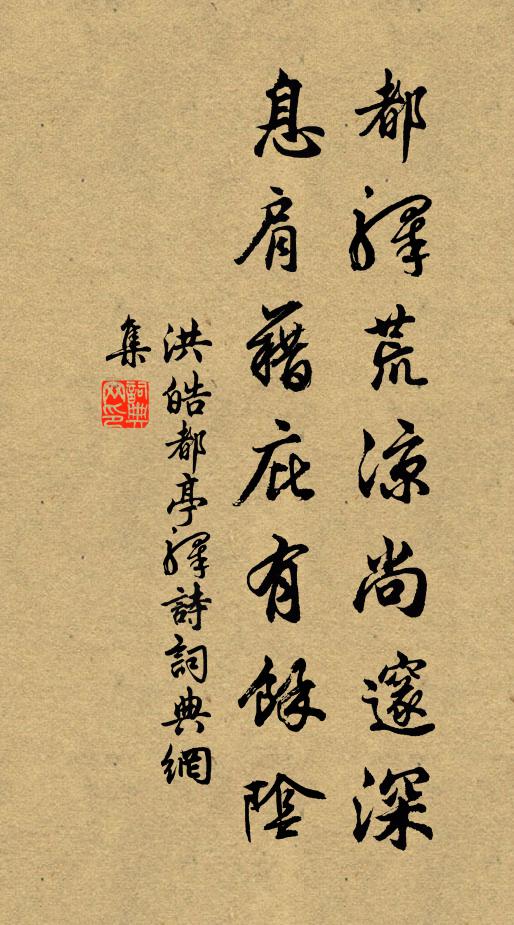 都驛荒涼尚邃深
息肩藉庇有餘陰
洪皓都亭驛詩詞典網
集
詞典網印